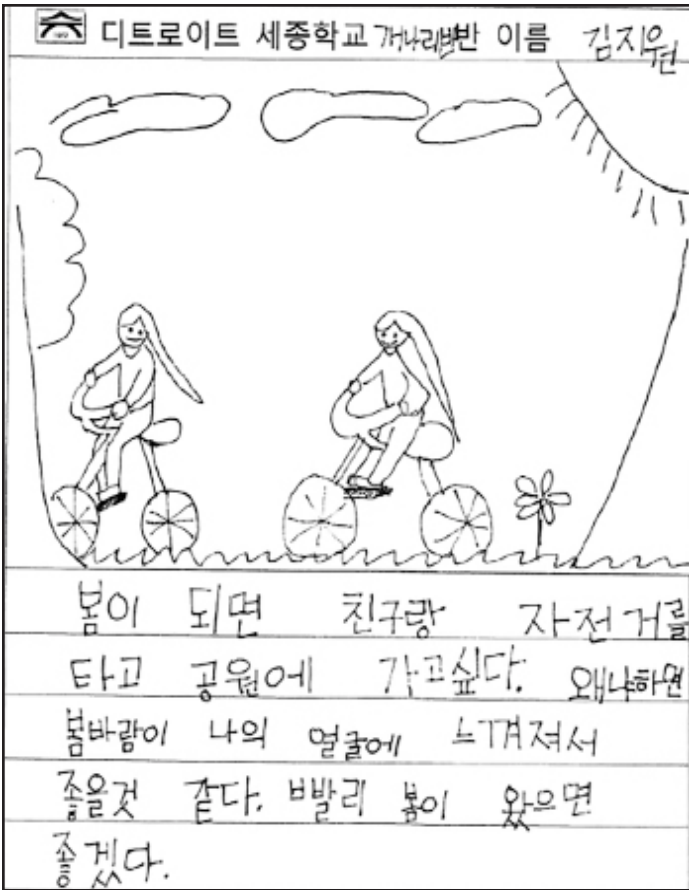 디트로이트 세종학교 개나리반 이름 김지원
봄이 되면 친구랑 자전거를
타고 공원에 가고싶다. 왜냐하면
봄바람이 나의 얼굴에 느껴져서
좋을것 같다. 빨리 봄이 왔으면
좋겠다.